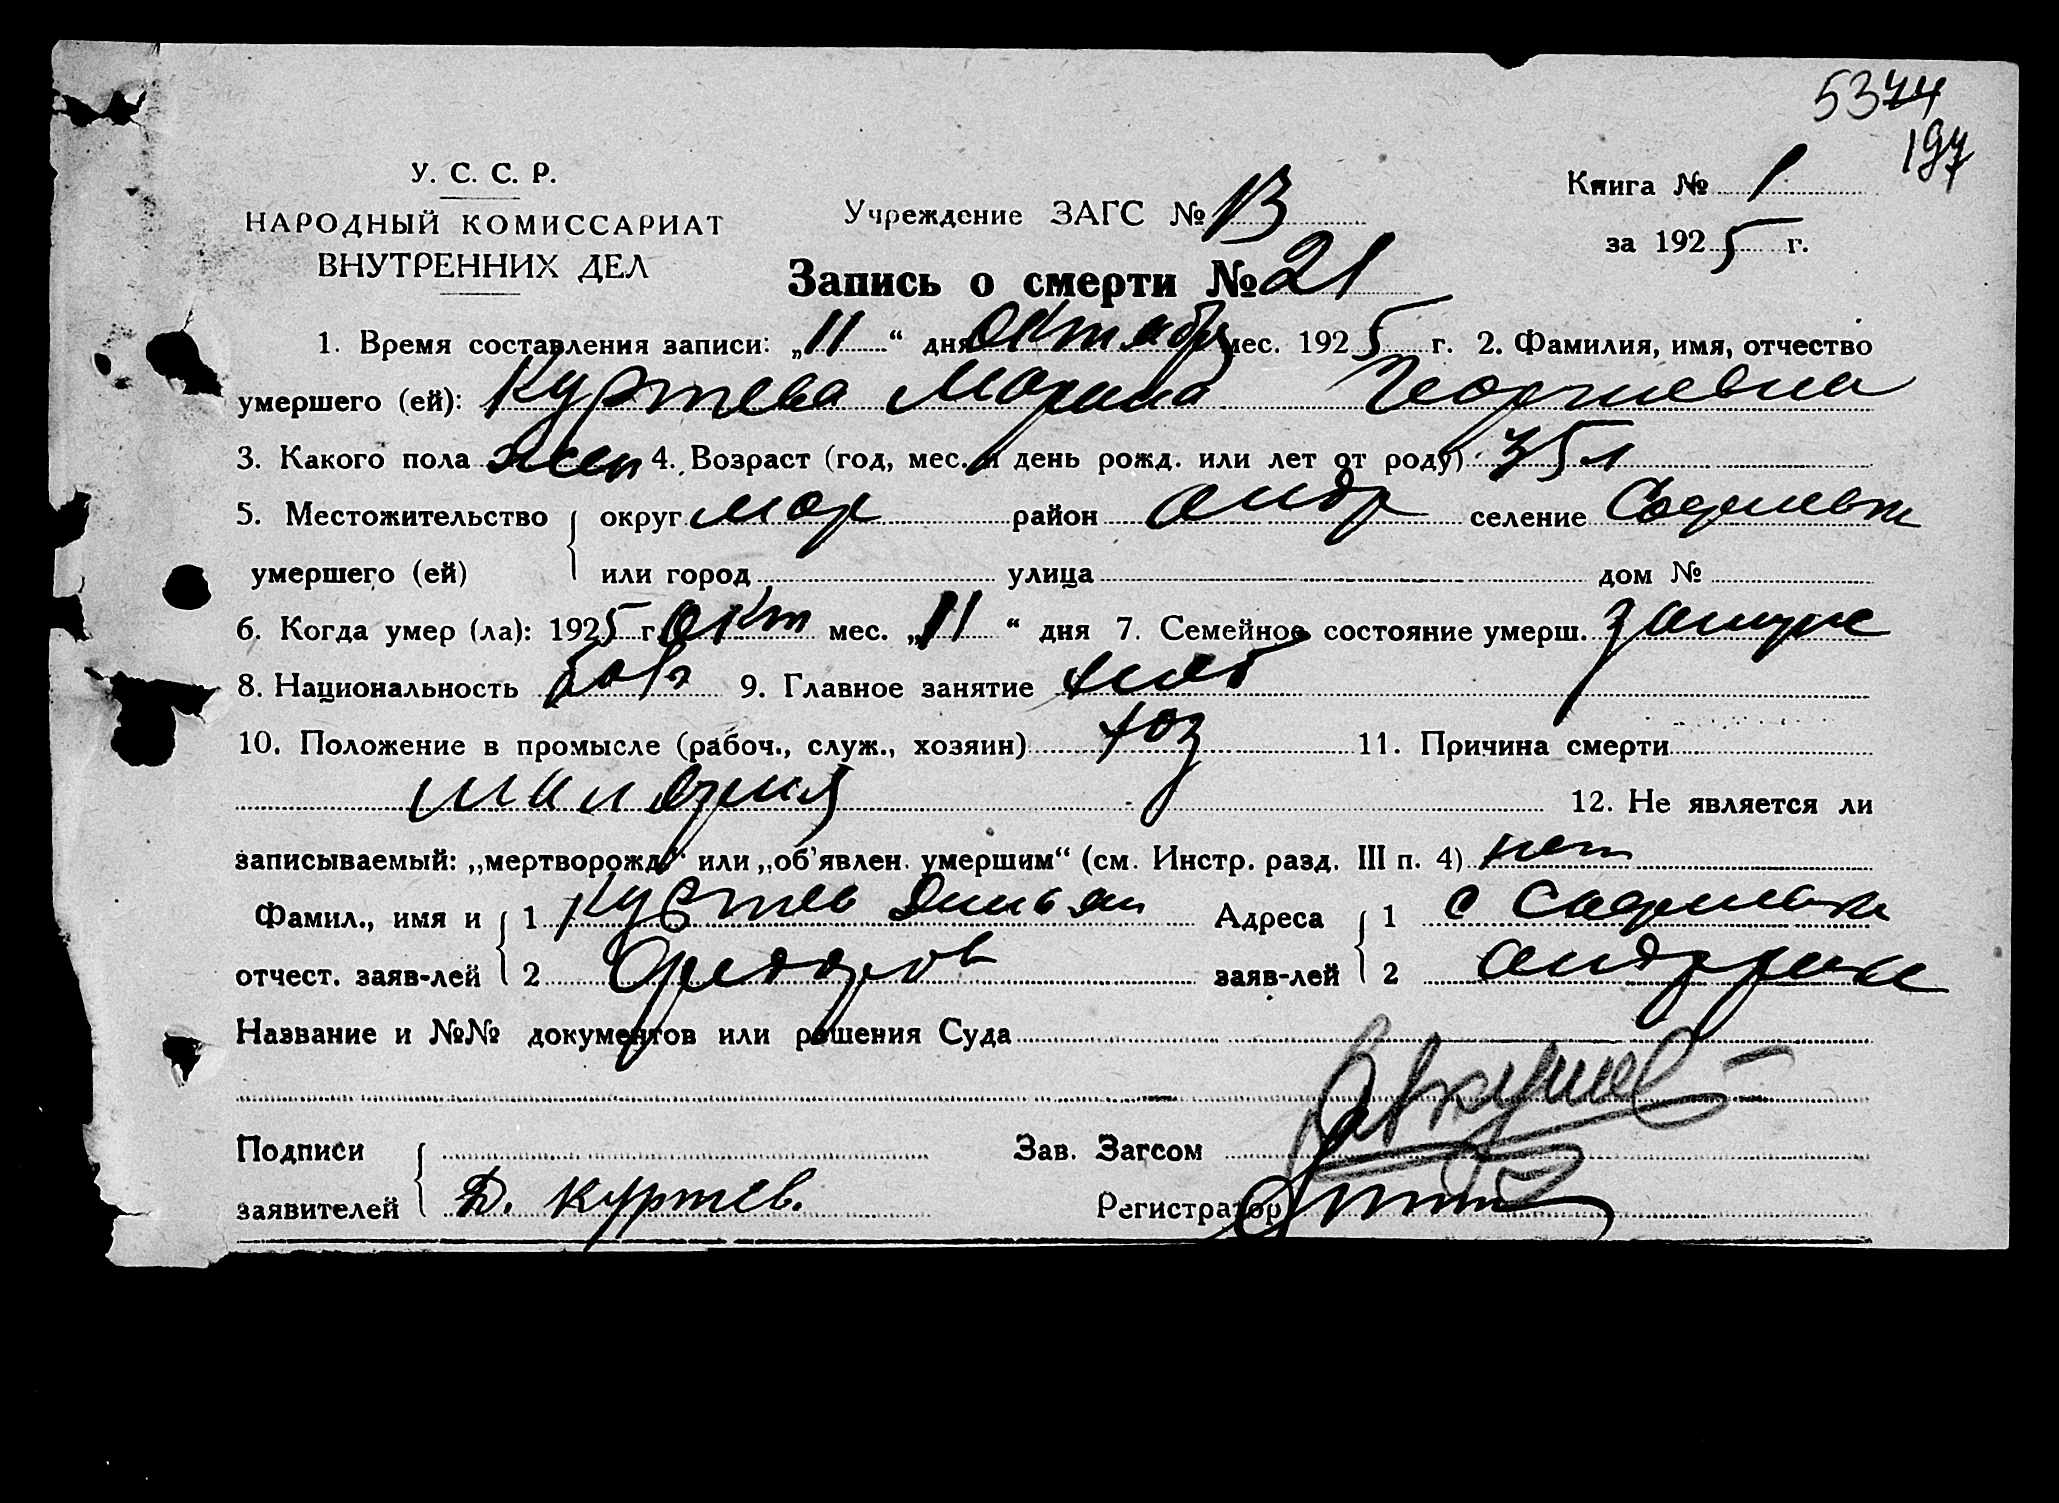 5374
197
У. С. С. Р.
НАРОДНЫЙ КОМИССАРИАТ
ВНУТРЕННИХ ДЕЛ
Учреждение ЗАГС № 13
Книга № 1
за 1925 г.
Запись о смерти № 21
1. Время составления записи: „11“ дня октября мес. 1925 г. 2. Фамилия, имя, отчество
умершего (ей): Куртева Марина Георгиевна
3. Какого пола жен 4. Возраст (год, мес. и день рожд. или лет от роду) 35 л
5. Местожительство округ мар район андр селение
умершего (ей) или город улица дом №
6. Когда умер (ла): 1925 г. окт мес. „11“ дня 7. Семейное состояние умерш. замуж
8. Национальность болг 9. Главное занятие хлеб
10. Положение в промысле (рабоч., служ., хозяин) хоз 11. Причина смерти
малярия 12. Не является ли
записываемый: „мертворожд“ или „об'явлен. умершим“ (см. Инстр. разд. III п. 4) нет
Фамил., имя и 1 Куртев Демьян Адреса 1 с
отчест. заяв-лей 2 Федоров заяв-лей 2
Название и №№ документов или решения Суда
Подписи Зав. Загсом
заявителей Д. Куртев. Регистратор